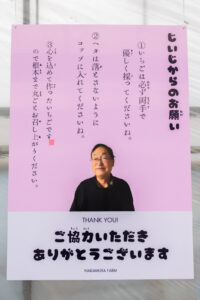 じいじからのお願い
①いちごは必ず両手で
優しく採ってくださいね。
②ヘタは落とさないように
コップに入れてくださいね。
③心を込めて作ったいちごです
ので根本まで丸ごとお召し上がりください。
THANK YOU!
ご協力いただき
ありがとうございます